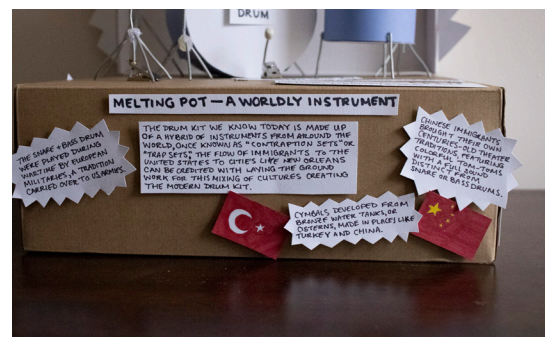 DRUM
MELTING POT — A WORLDLY INSTRUMENT
THE SNARE + BASS DRUM
WERE PLAYED DURING
WARTIME BY EUROPEAN
MILITARIES, A TRADITION
CARRIED OVER TO US ARMIES.
THE DRUM KIT WE KNOW TODAY IS MADE UP
OF A HYBRID OF INSTRUMENTS FROM AROUND THE
WORLD, ONCE KNOWN AS "CONTRAPTION SETS" OR
"TRAP SETS," THE FLOW OF IMMIGRANTS TO THE
UNITED STATES TO CITIES LIKE NEW ORLEANS
CAN BE CREDITED WITH LAYING THE GROUND
WORK FOR THIS MIXING OF CULTURES CREATING
THE MODERN DRUM KIT.
CHINESE IMMIGRANTS
BROUGHT THEIR OWN
CENTURIES-OLD THEATER
TRADITIONS FEATURING
COLORFUL TOM-TOMS
WITH A FULL SOUND
DISTINCT FROM A
SNARE OR BASS DRUMS.
CYMBALS DEVELOPED FROM
BRONZE WATER TANKS, OR
CISTERNS, MADE IN PLACES LIKE
TURKEY AND CHINA.